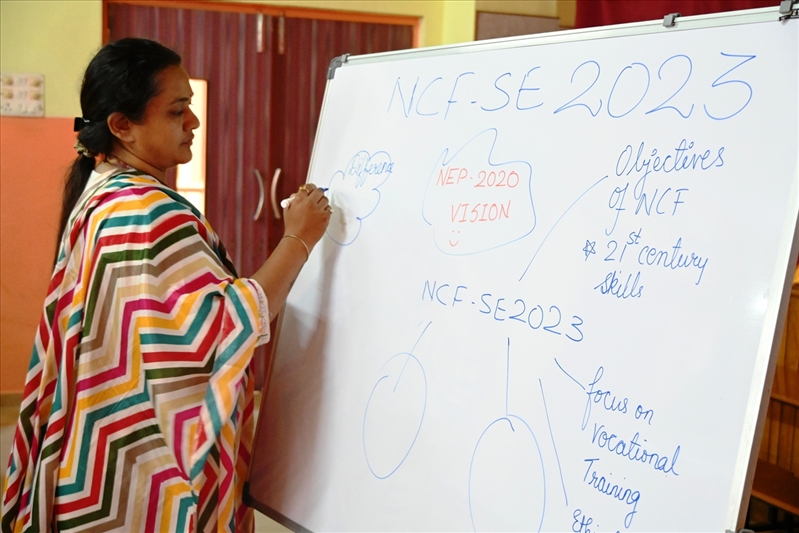 NCF-SE 2023
Difference
NEP-2020
VISION
Objectives
of NCF
21st century
skills
NCF-SE2023
focus on
vocational
Training